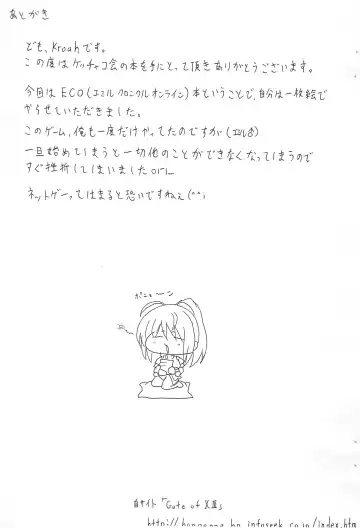 あとがき
ども、Kroahです。
この度はケッチャコ会の本を手にとって頂きありがとうございます。
今回はECO(エミルクロニクルオンライン)本ということで、自分は一枚絵で
やらせていただきました。
このゲーム、俺も一度だけやってたのですが(エミル♂)
一旦始めてしまうと一切他のことができなくなってしまうので
すぐ挫折してしまいましたorz
ネットゲーってはまると恐いですねぇ(^^;
ポニョーン
自サイト『Gate of XIII』